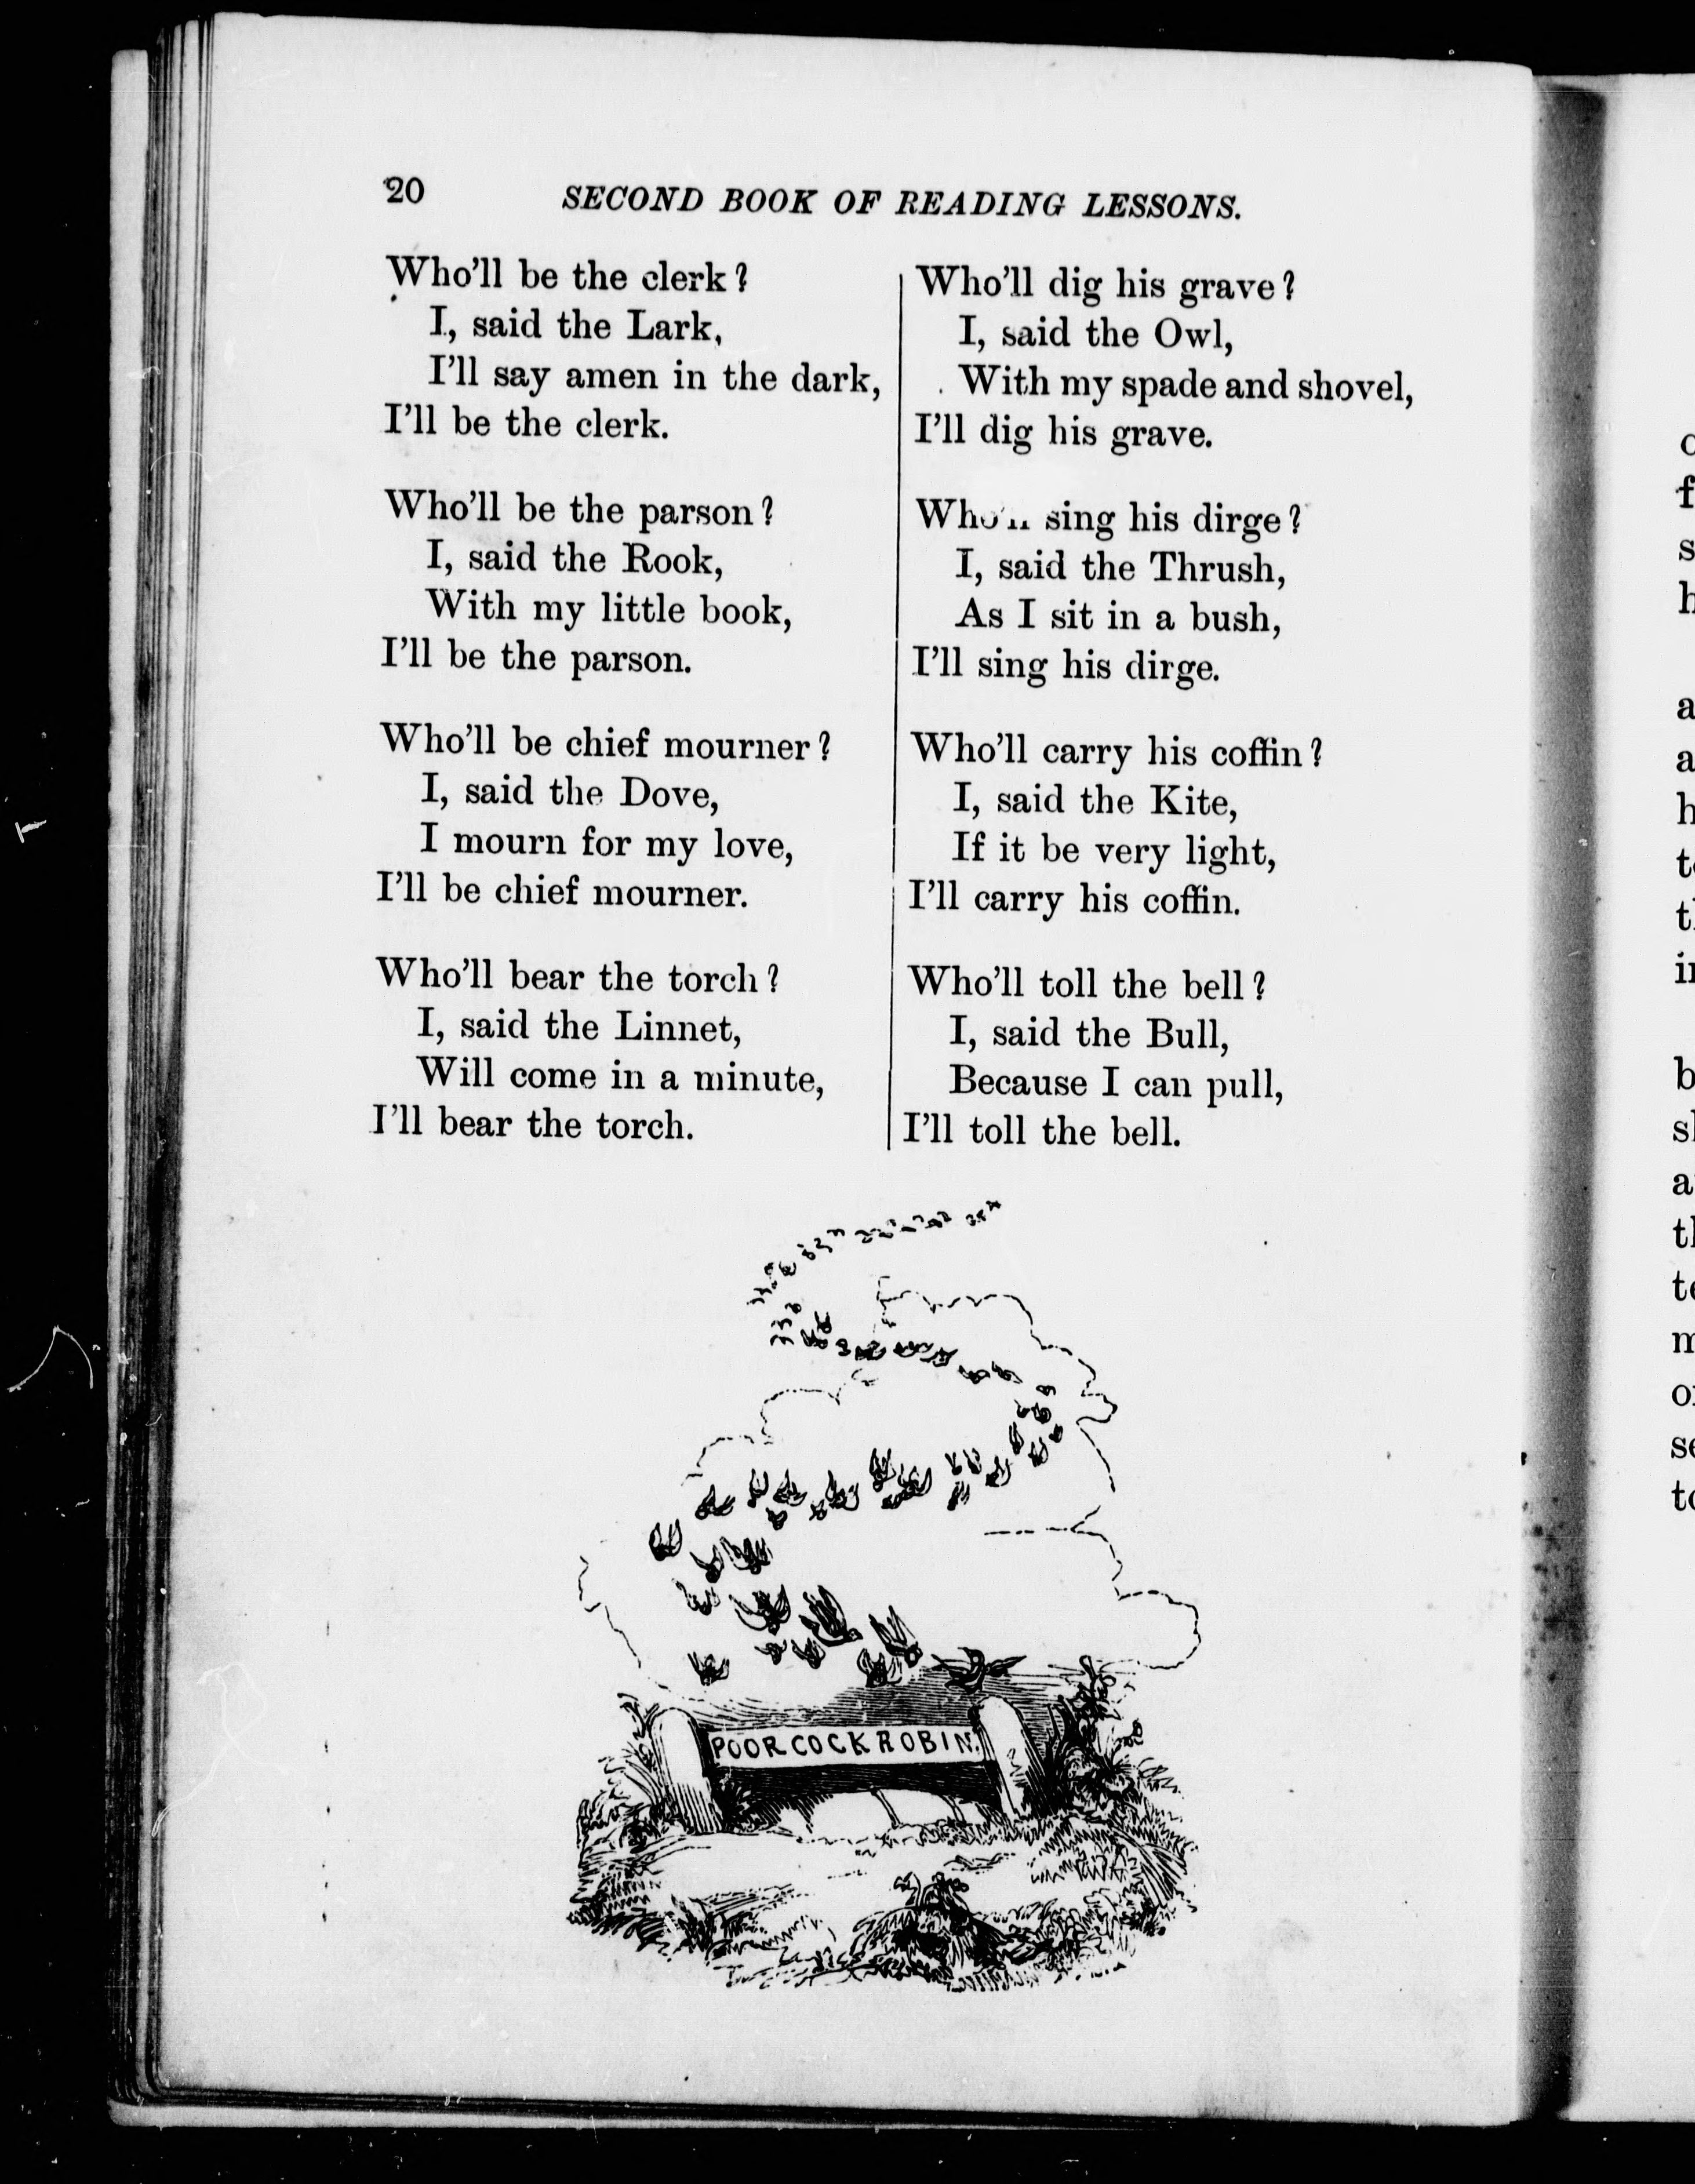 20 SECOND BOOK OF READING LESSONS.
Who'll be the clerk?
I, said the Lark,
I'll say amen in the dark,
I'll be the clerk.
Who'll be the parson?
I, said the Rook,
With my little book,
I'll be the parson.
Who'll be chief mourner?
I, said the Dove,
I mourn for my love,
I'll be chief mourner.
Who'll bear the torch?
I, said the Linnet,
Will come in a minute,
I'll bear the torch.
Who'll dig his grave?
I, said the Owl,
With my spade and shovel,
I'll dig his grave.
Who'll sing his dirge?
I, said the Thrush,
As I sit in a bush,
I'll sing his dirge.
Who'll carry his coffin?
I, said the Kite,
If it be very light,
I'll carry his coffin.
Who'll toll the bell?
I, said the Bull,
Because I can pull,
I'll toll the bell.
POOR COCK ROBIN.